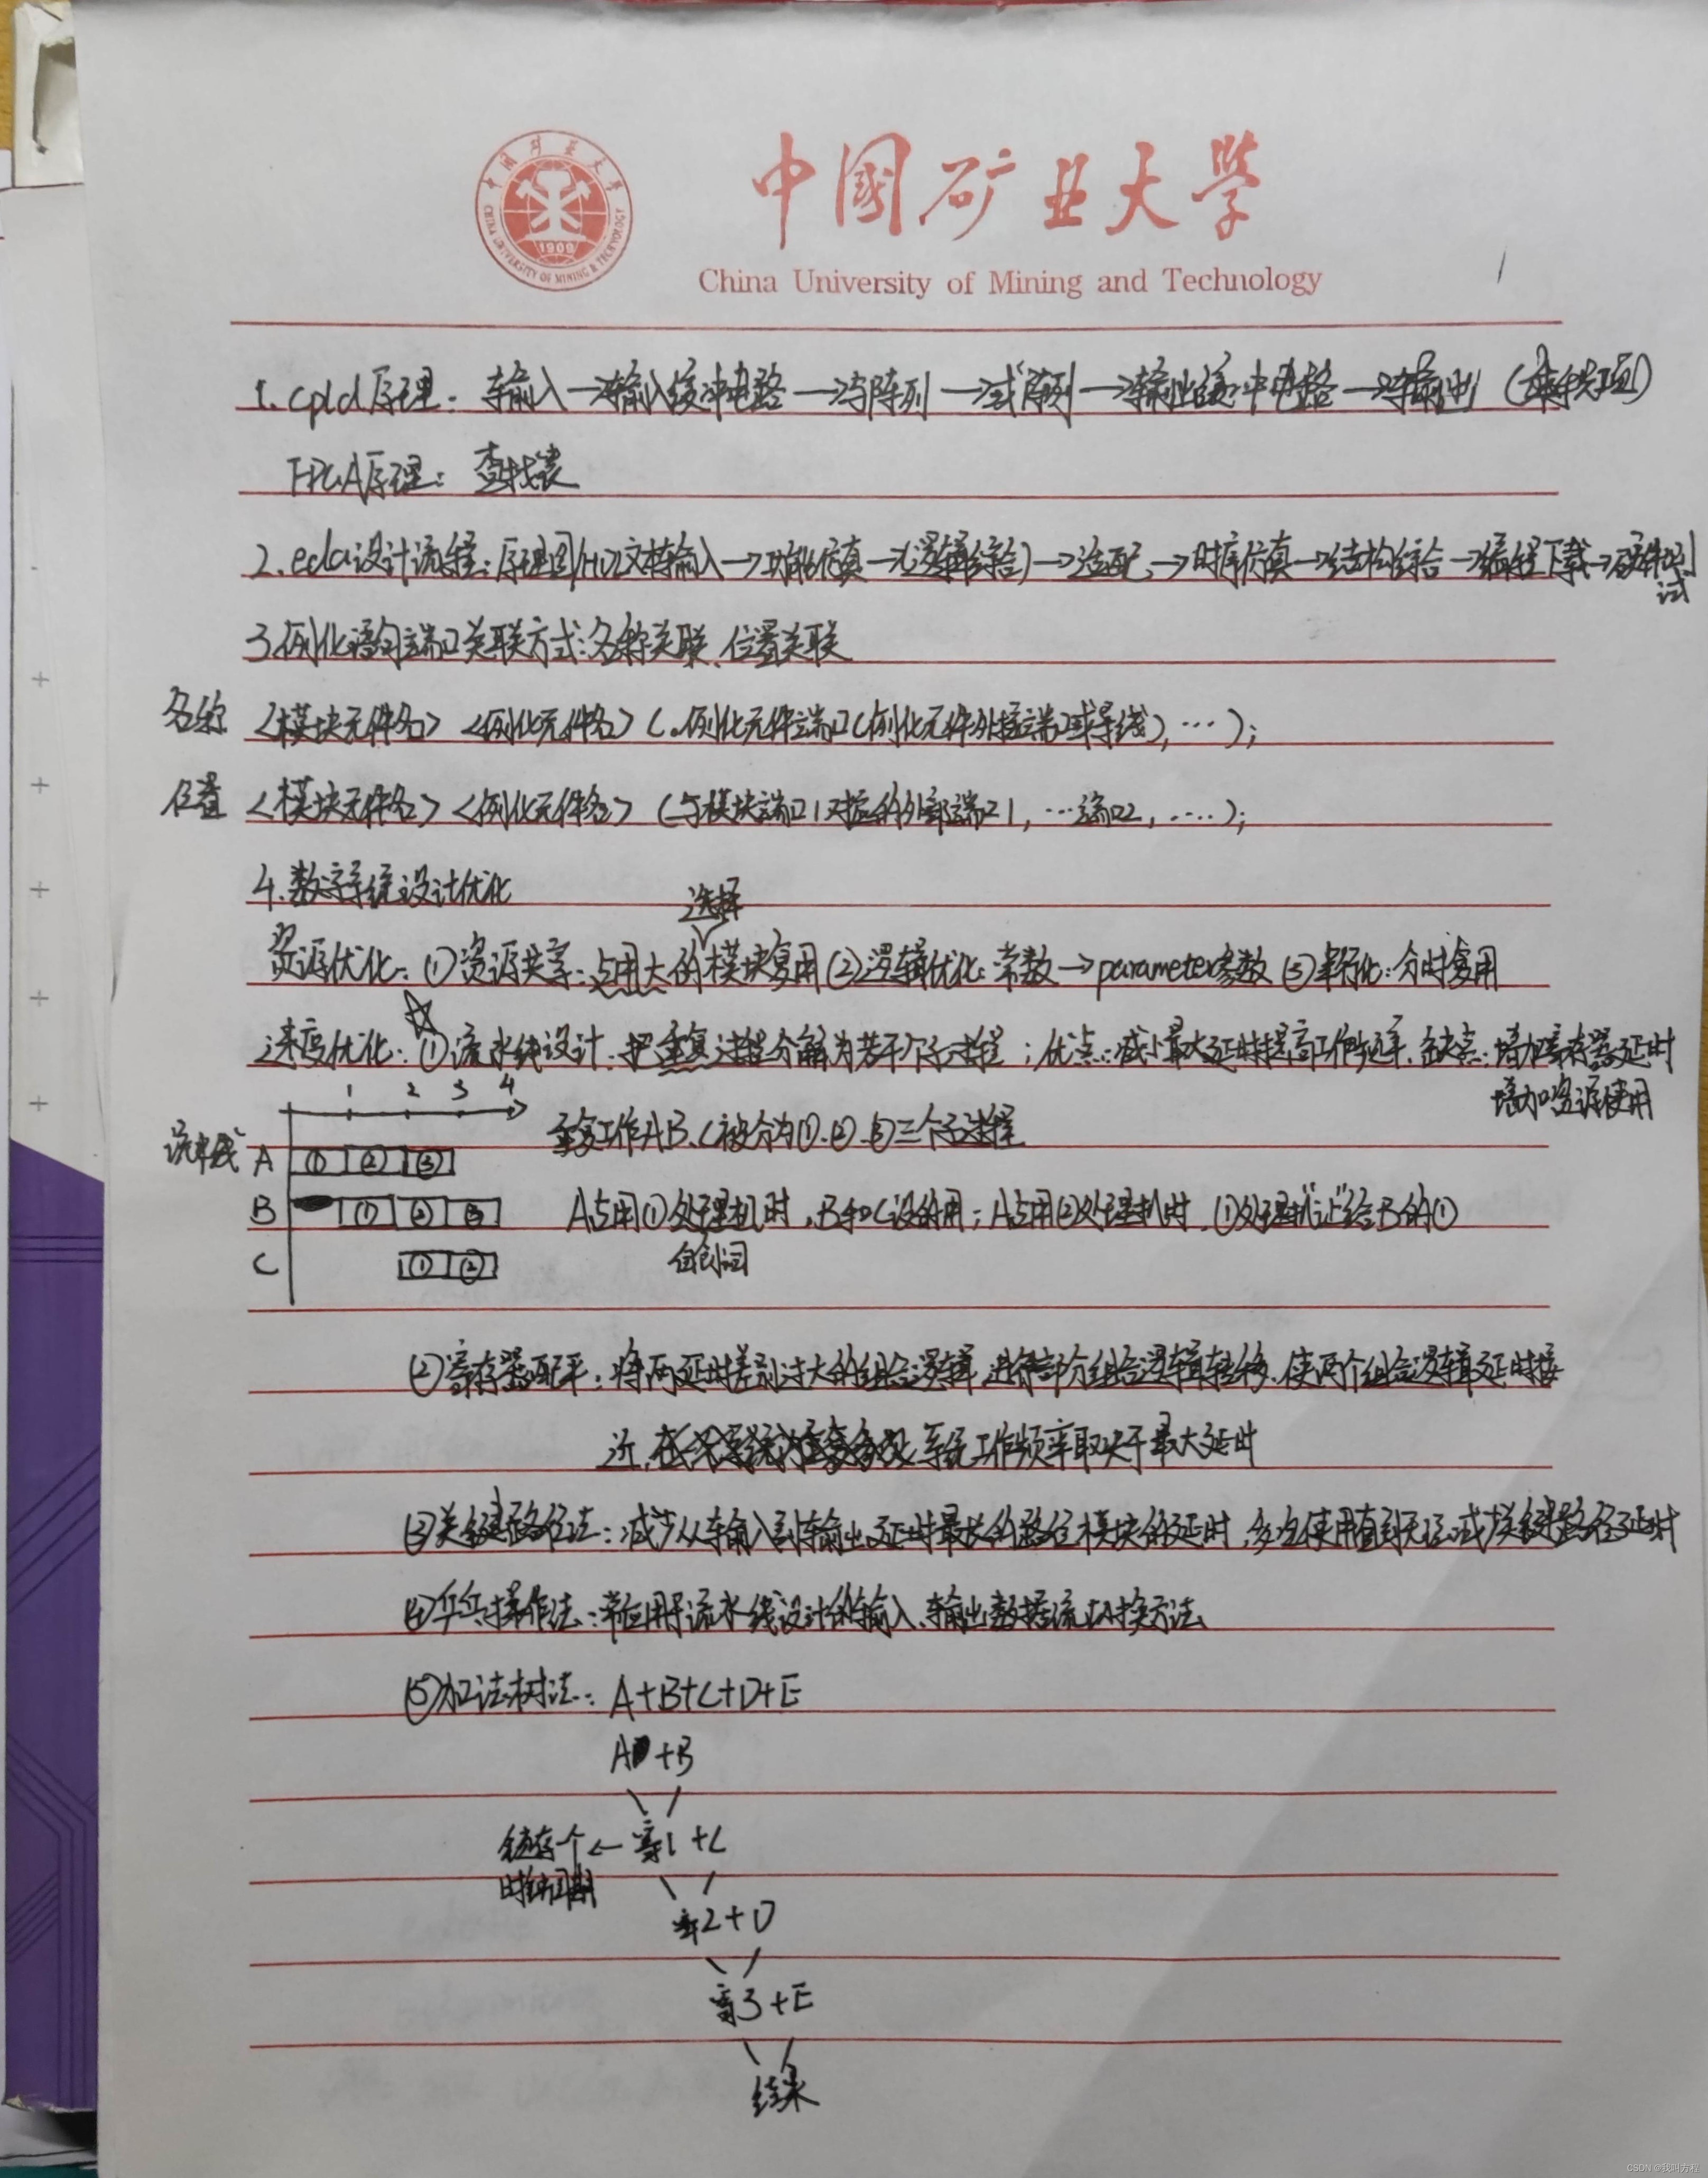 中国矿业大学
CHINA UNIVERSITY OF MINING & TECHNOLOGY
1909
中国矿业大学
China University of Mining and Technology
1. cpld原理: 输入→输入缓冲电路→与阵列→或阵列→输出缓冲电路→输出 (乘积项)
FPGA原理: 查找表
2. eda设计流程: 原理图/HDL文本输入→功能仿真→(逻辑综合)→适配→时序仿真→结构综合→编程下载→硬件测
试
3.例化语句端口关联方式: 名称关联、位置关联
名称 <模块元件名> <例化元件名> (.例化元件端口(例化元件外接端口或导线), …);
位置 <模块元件名> <例化元件名> (与模块端口1对应的外部端口1, …端口2, ….);
4.数字系统设计优化
选择
资源优化: ①资源共享: 占用大的模块复用 ②逻辑优化: 常数→parameter参数 ③串行化: 分时复用
速度优化: ①流水线设计: 把重复过程分解为若干个子过程; 优点: 减小最大延时提高工作频率. 缺点: 增加寄存器延时
增加资源使用
1 2 3 4
重复工作A、B、C被分为①、②、③三个子过程
流水线 A ① ② ③
B ① ② ③ A占用①处理机时, B和C没的用; A占用②处理机时, ①处理机"让"给B的①
C ① ② 自创词
②寄存器配平: 将两延时差别过大的组合逻辑, 进行部分组合逻辑转移, 使两个组合逻辑延时接
近, 系统工作频率取决于最大延时
③关键路径法: 减少从输入到输出延时最长的路径模块的延时, 多次使用直到无法减少关键路径延时
④乒乓操作法: 常应用于流水线设计的输入、输出数据流切换方法
⑤加法树法: A+B+C+D+E
A+B
存个 ← 寄1 +C
时钟周期
寄2+D
寄3+E
结果
CSDN @我叫方程